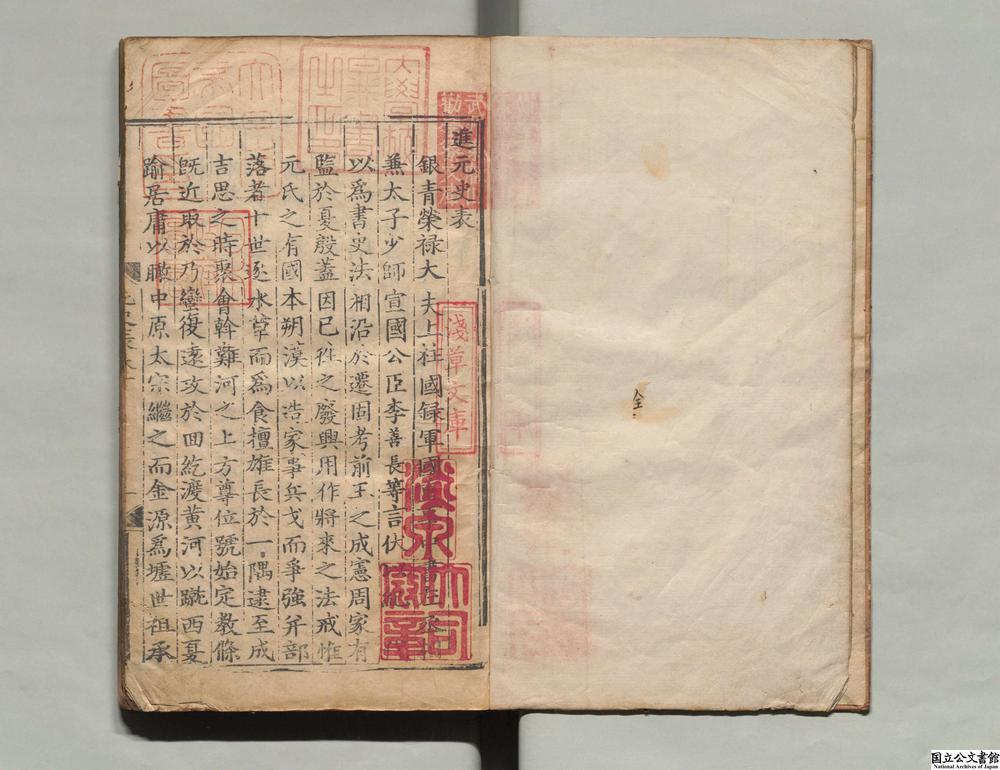 仝
進元史表
銀青榮禄大夫上柱國録軍國
兼太子少師宣國公臣李善長等言伏
以爲書史法相沿於遷固考前王之成憲周家有
監於夏殷蓋因已往之廢興用作將來之法戒惟
元氏之有國本朔漠以造家事兵戈而爭強并部
落者十世逐水草而爲食擅雄長於一隅逮至成
吉思之時聚會斡難河之上方尊位號始定教條
旣近取於乃蠻復遠攻於回紇渡黃河以蹴西夏
踰居庸以瞰中原太宗繼之而金源爲墟世祖承
淺草文庫
国立公文書館
National Archives of Japan